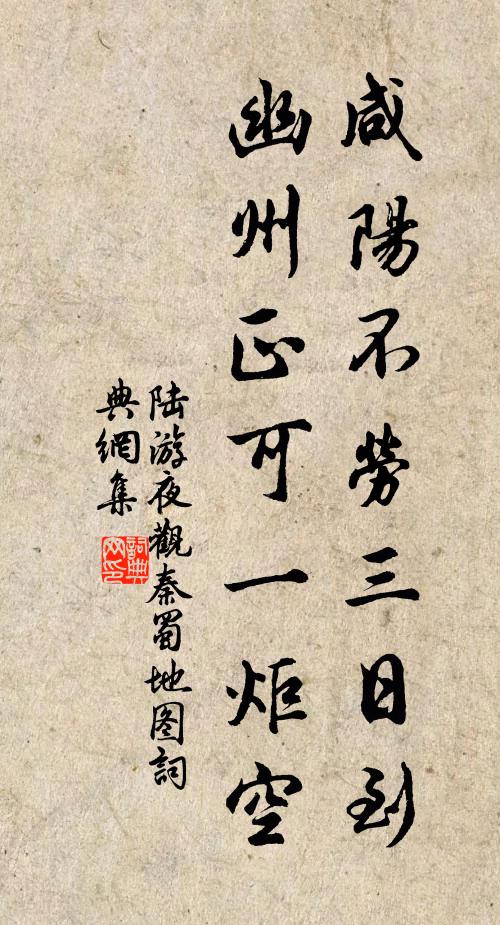 咸陽不勞三日到
幽州正可一炬空
陆游夜觀秦蜀地图詞
典網集
詞典网印